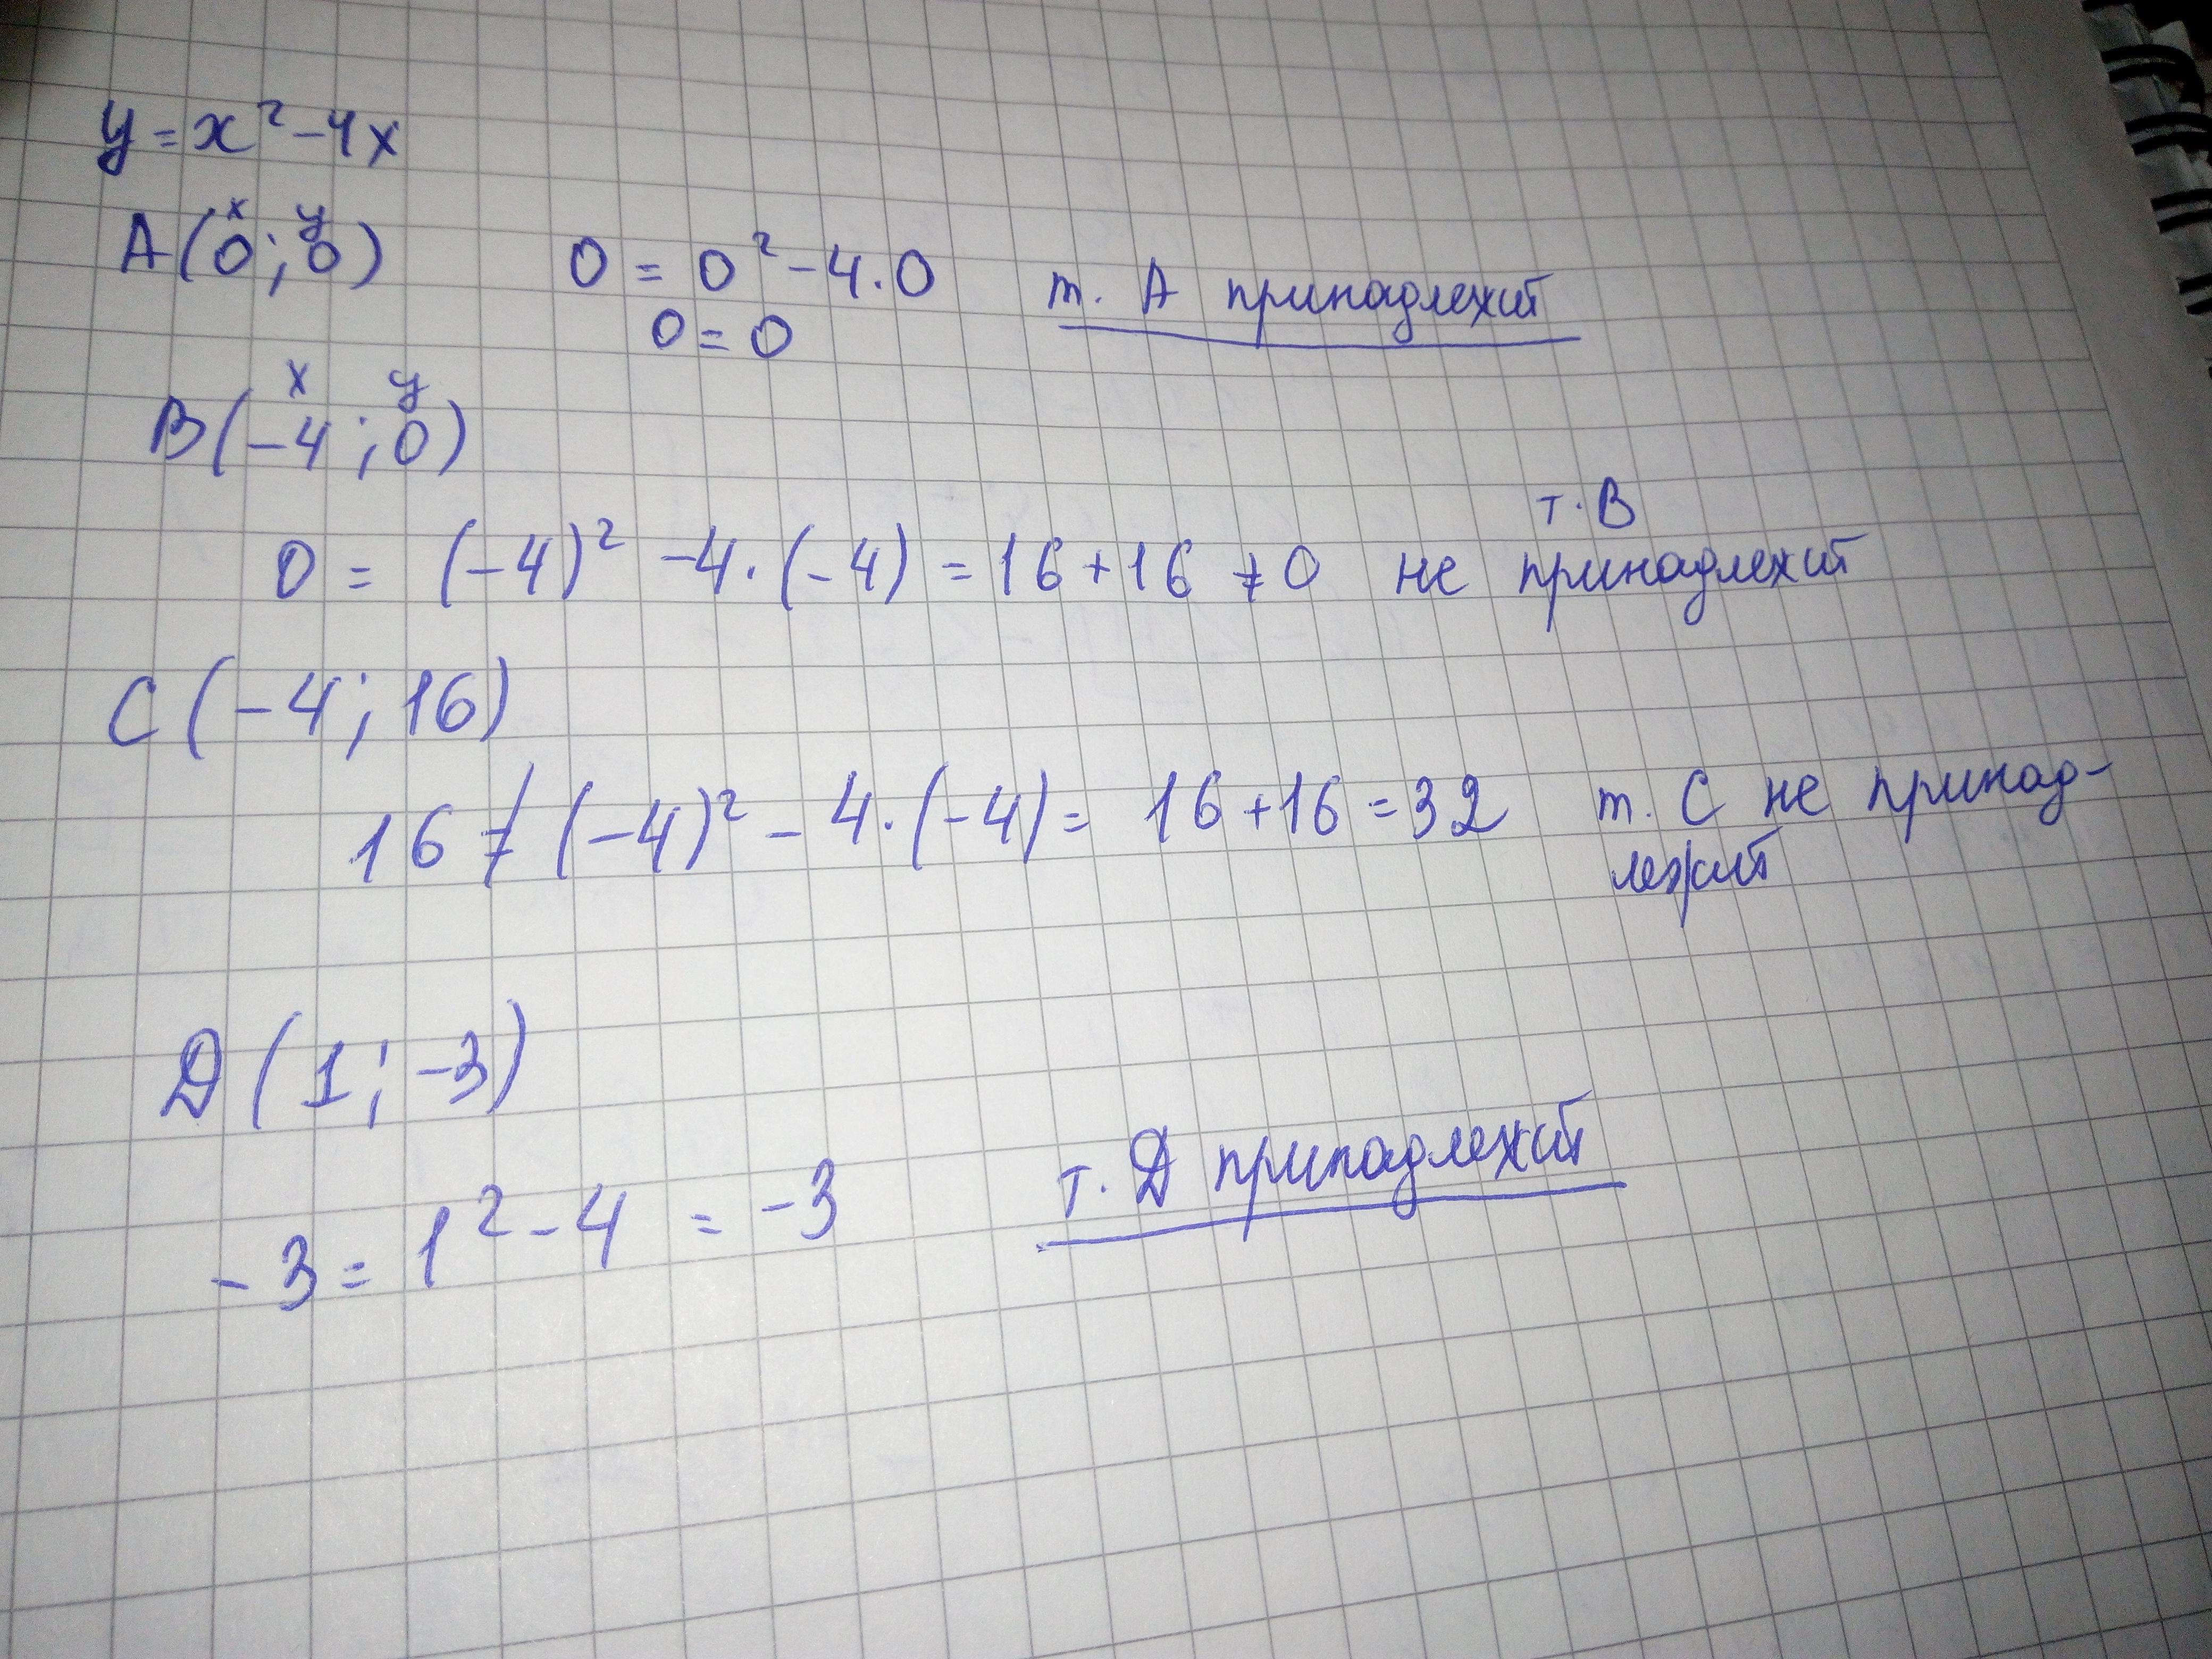 y = x² - 4x
x y
A(0; 0) 0 = 0² - 4·0 т. A принадлежит
0 = 0
x y
B(-4; 0)
т. B
0 = (-4)² - 4·(-4) = 16 + 16 ≠ 0 не принадлежит
C(-4; 16)
16 ≠ (-4)² - 4·(-4) = 16 + 16 = 32 т. C не принад-
лежит
D(1; -3)
-3 = 1² - 4 = -3 т. D принадлежит